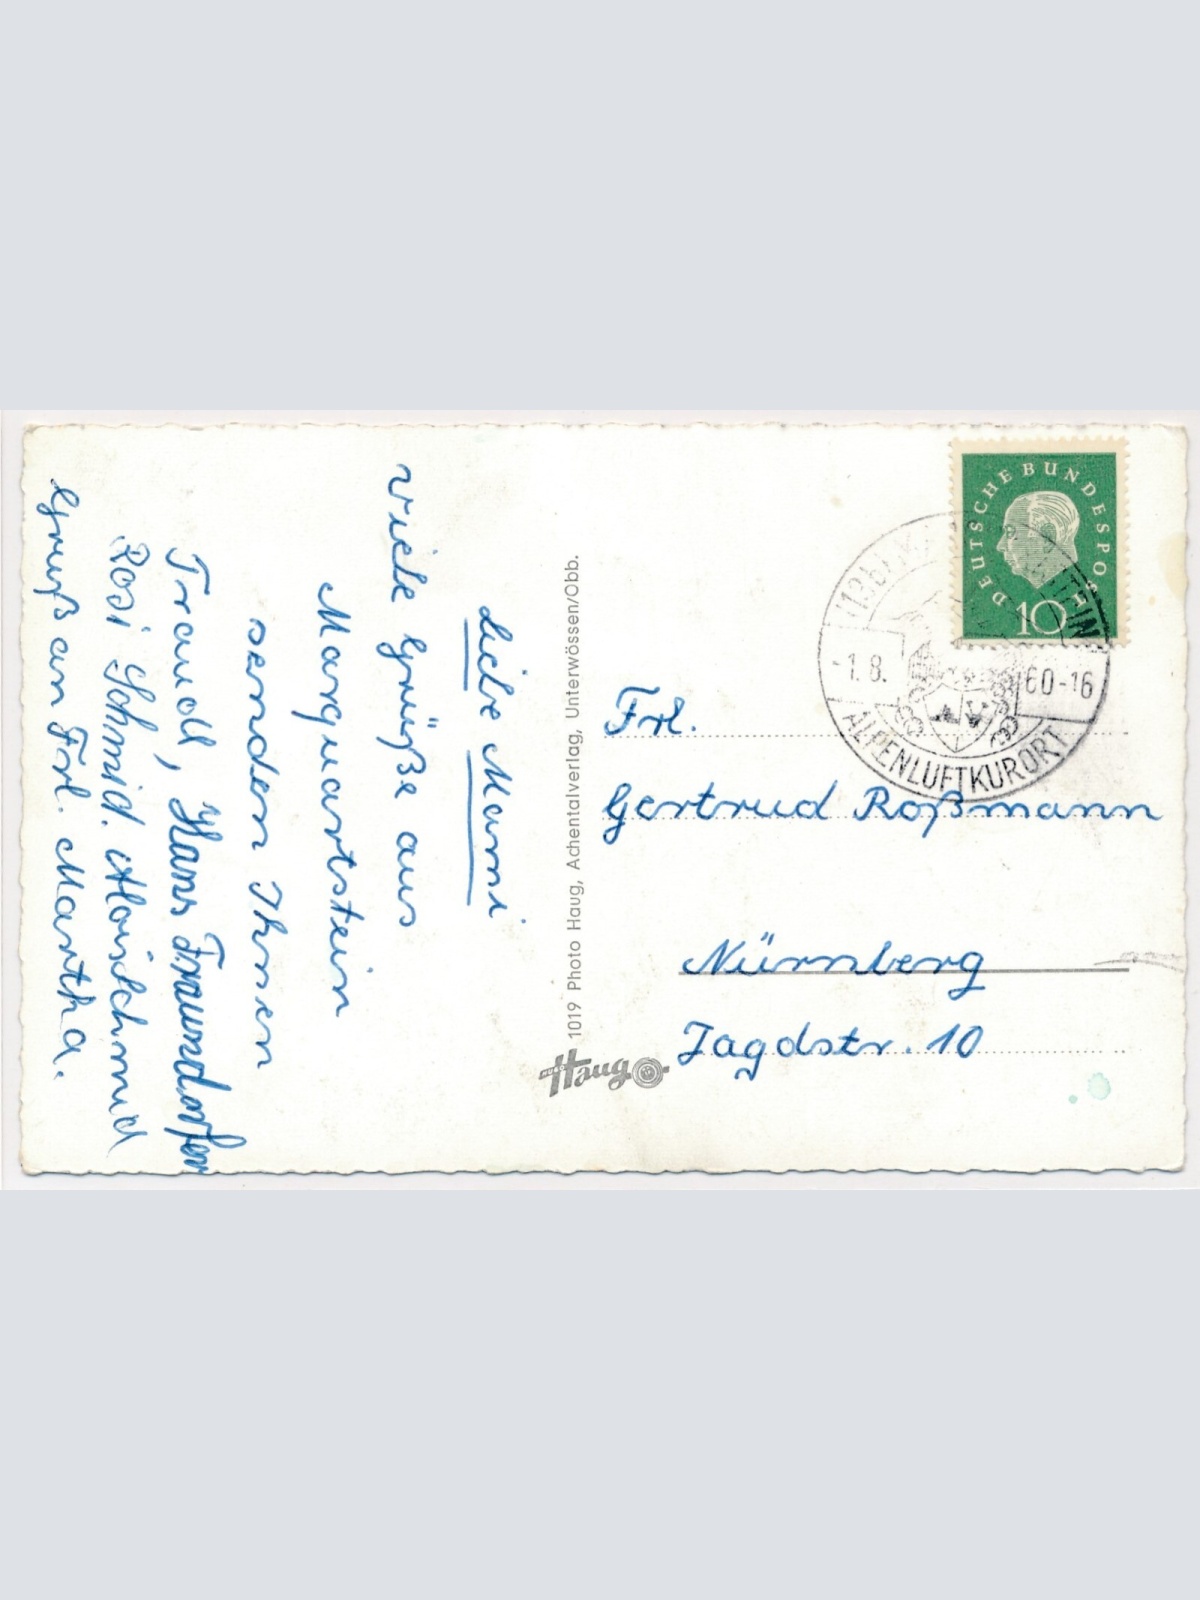 Liebe Mami
viele Grüße aus
Marquartstein
senden Ihnen
Traudl, Hans Traundorfer
Rosi Schmid. Aloisschmid
Gruß an Frl. Martha.
1019 Photo Haug, Achentalverlag, Unterwössen/Obb.
Haug
DEUTSCHE BUNDESPOST
10
-1.8. 60-16
ALPENLUFTKURORT
Frl.
Gertrud Roßmann
Nürnberg
Jagdstr. 10